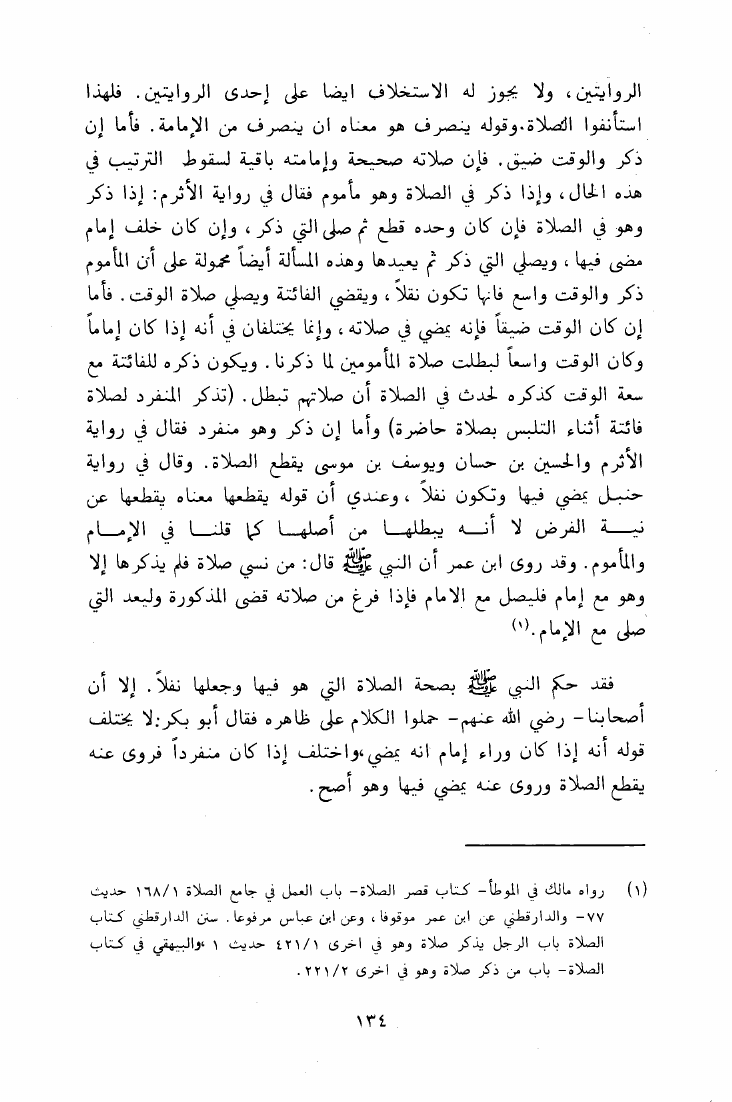 الروايتين، ولا يجوز له الاستخلاف ايضا على إحدى الروايتين. فلهذا
استأنفوا الصلاة.وقوله ينصرف هو معناه ان ينصرف من الإمامة. فأما إن
ذكر والوقت ضيق. فإن صلاته صحيحة وإمامته باقية لسقوط الترتيب في
هذه الحال، وإذا ذكر في الصلاة وهو مأموم فقال في رواية الأثرم: إذا ذكر
وهو في الصلاة فإن كان وحده قطع ثم صلى التي ذكر، وإن كان خلف إمام
مضى فيها، ويصلي التي ذكر ثم يعيدها وهذه المسألة أيضاً محمولة على أن المأموم
ذكر والوقت واسع فانها تكون نفلاً، ويقضي الفائتة ويصلي صلاة الوقت. فأما
إن كان الوقت ضيقاً فإنه يمضي في صلاته، وإنما يختلفان في أنه إذا كان إماماً
وكان الوقت واسعاً لبطلت صلاة المأمومين لما ذكرنا. ويكون ذكره للفائتة مع
سعة الوقت كذكره لحدث في الصلاة أن صلاتهم تبطل. (تذكر المنفرد لصلاة
فائتة أثناء التلبس بصلاة حاضرة) وأما إن ذكر وهو منفرد فقال في رواية
الأثرم والحسين بن حسان ويوسف بن موسى يقطع الصلاة. وقال في رواية
حنبل يمضي فيها وتكون نفلاً، وعندي أن قوله يقطعها معناه يقطعها عن
نية الفرض لا أنه يبطلها من أصلها كما قلنا في الإمام
والمأموم. وقد روى ابن عمر أن النبي ﷺ قال: من نسي صلاة فلم يذكرها إلا
وهو مع إمام فليصل مع الامام فإذا فرغ من صلاته قضى المذكورة وليعد التي
صلى مع الإمام.(١)
فقد حكم النبي ﷺ بصحة الصلاة التي هو فيها وجعلها نفلاً. إلا أن
أصحابنا- رضي الله عنهم- حملوا الكلام على ظاهره فقال أبو بكر:لا يختلف
قوله أنه إذا كان وراء إمام انه يمضي،واختلف إذا كان منفرداً فروى عنه
يقطع الصلاة وروى عنه يمضي فيها وهو أصح.
(١) رواه مالك في الموطأ- كتاب قصر الصلاة- باب العمل في جامع الصلاة ١٦٨/١ حديث
٧٧- والدارقطني عن ابن عمر موقوفا، وعن ابن عباس مرفوعا. سنن الدارقطني كتاب
الصلاة باب الرجل يذكر صلاة وهو في اخرى ٤٢١/١ حديث ١ ،والبيهقي في كتاب
الصلاة- باب من ذكر صلاة وهو في اخرى ٢٢١/٢.
١٣٤